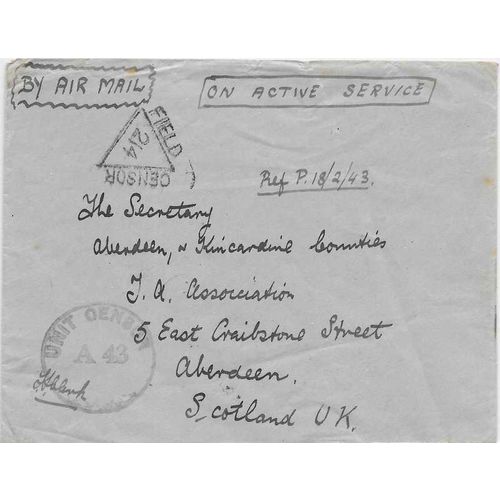 BY AIR MAIL
ON ACTIVE SERVICE
FIELD
214
CENSOR
Ref P.18/2/43.
The Secretary
Aberdeen, & Kincardine Counties
T. A. Association
5 East Craibstone Street
Aberdeen.
Scotland U.K.
UNIT CENSOR
A 43